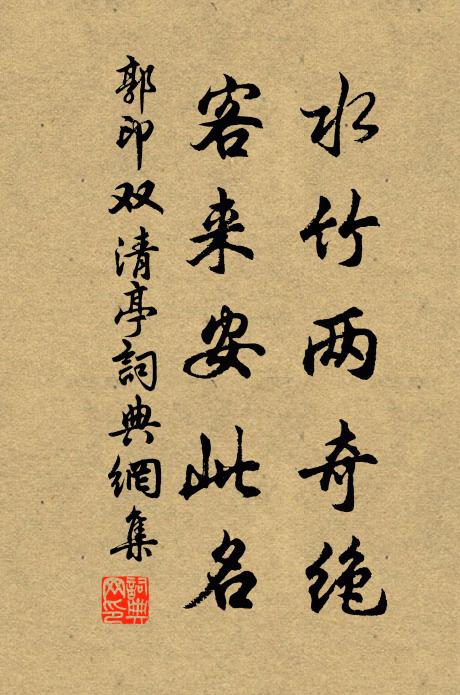 水竹两奇绝
客来安此名
郭印双清亭詞典網集
詞典网印